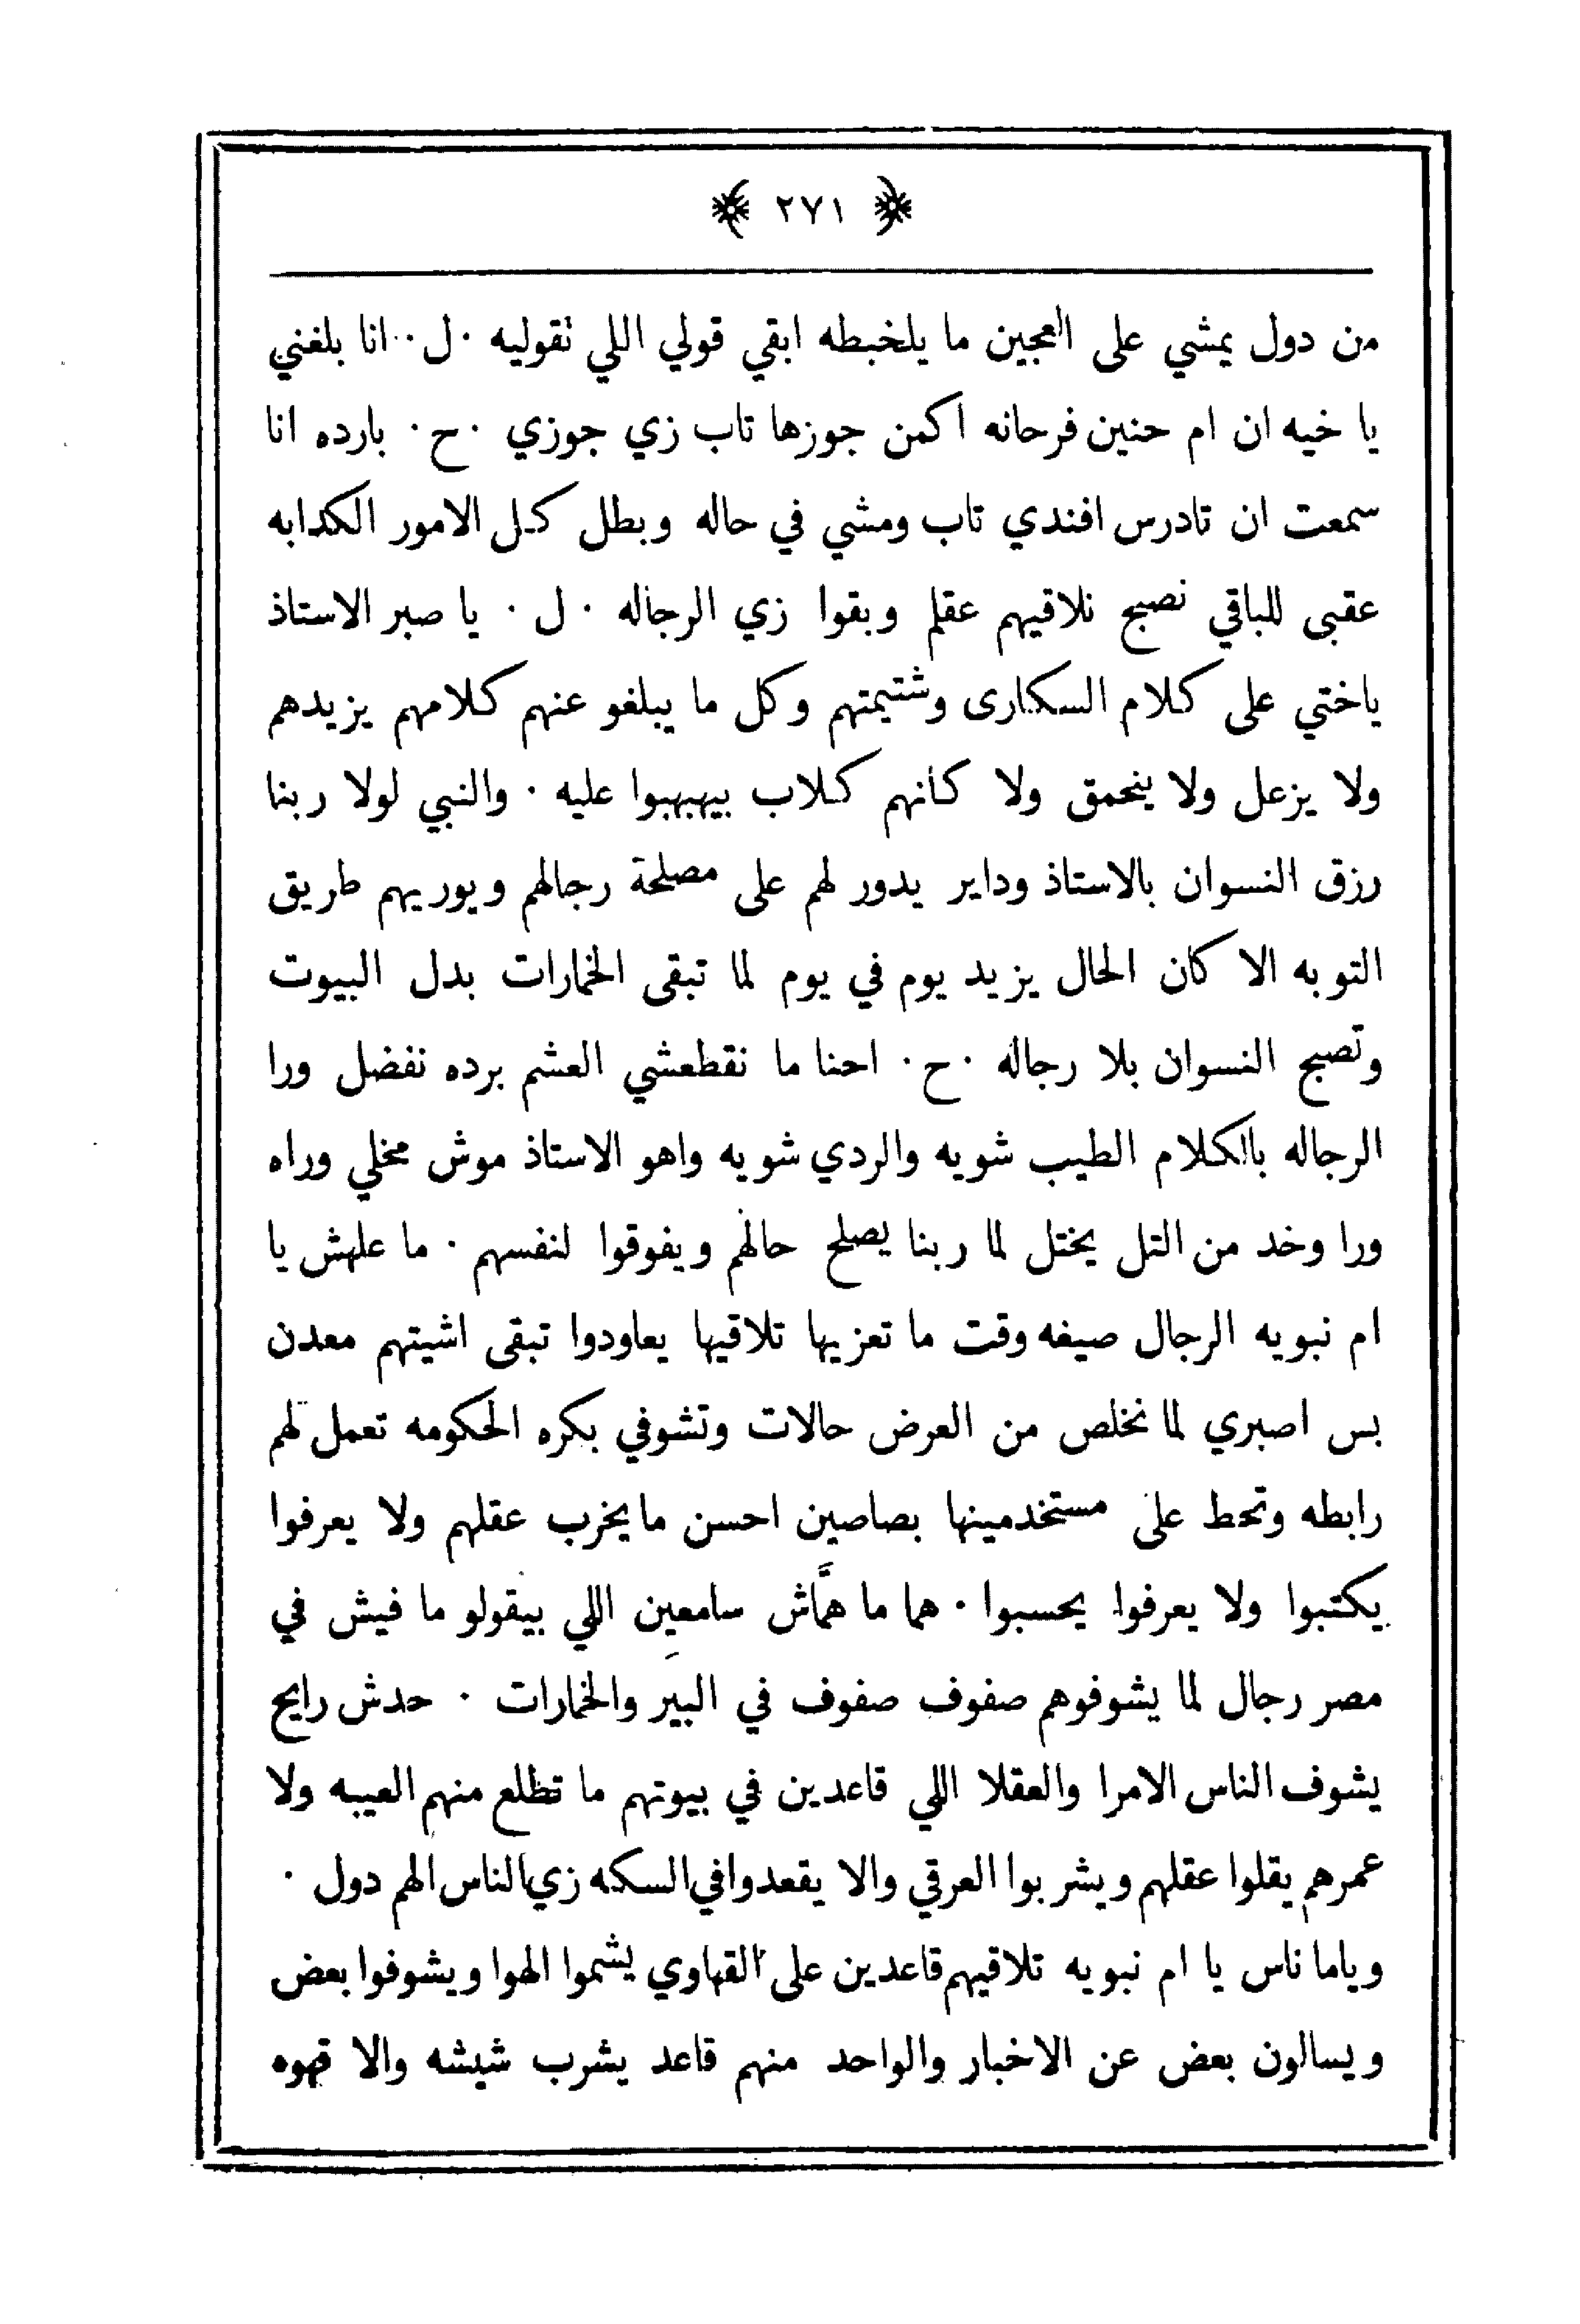 ٢٧١
من دول يمشي على العجين ما يلخبطه ابقي قولي اللي تقوليه ·ل·· انا بلغني
يا خيه ان ام حنين فرحانه اكمن جوزها تاب زي جوزي ·ح· بارده انا
سمعت ان تادرس افندي تاب ومشي في حاله وبطل كل الامور الكدابه
عقبى للباقي نصبح نلاقيهم عقلم وبقوا زي الرجاله · ل · يا صبر الاستاذ
ياختي على كلام السكارى وشتيمتهم وكل ما يبلغو عنهم كلامهم يزيدهم
ولا يزعل ولا ينحمق ولا كانهم كلاب بيهبهبوا عليه · والنبي لولا ربنا
رزق النسوان بالاستاذ وداير يدور لهم على مصلحة رجالهم ويوريهم طريق
التوبه الا كان الحال يزيد يوم في يوم لما تبقى الخمارات بدل البيوت
وتصبح النسوان بلا رجاله ·ح· احنا ما نقطعشي العشم برده نفضل ورا
الرجاله بالكلام الطيب شويه والردي شويه واهو الاستاذ موش مخلي وراه
ورا وخد من التل يختل لما ربنا يصلح حالهم ويفوقوا لنفسهم · ما علهش يا
ام نبويه الرجال صيغه وقت ما تعزيها تلاقيها يعاودوا تبقى اشيتهم معدن
بس اصبري لما نخلص من العرض حالات وتشوفي بكره الحكومه تعمل لهم
رابطه وتحط على مستخدمينها بصاصين احسن ما يخرب عقلهم ولا يعرفوا
يكتبوا ولا يعرفوا يحسبوا · هما ما همَّاش سامعين اللي بيقولو ما فيش في
مصر رجال لما يشوفوهم صفوف صفوف في البير والخمارات · حدش رايح
يشوف الناس الامرا والعقلا اللي قاعدين في بيوتهم ما تطلع منهم العيبه ولا
عمرهم يقلوا عقلهم ويشربوا العرقي والا يقعدوا في السكه زي الناس الهم دول ·
وياما ناس يا ام نبويه تلاقيهم قاعدين على القهاوي يشموا الهوا ويشوفوا بعض
ويسالون بعض عن الاخبار والواحد منهم قاعد يشرب شيشه والا قهوه